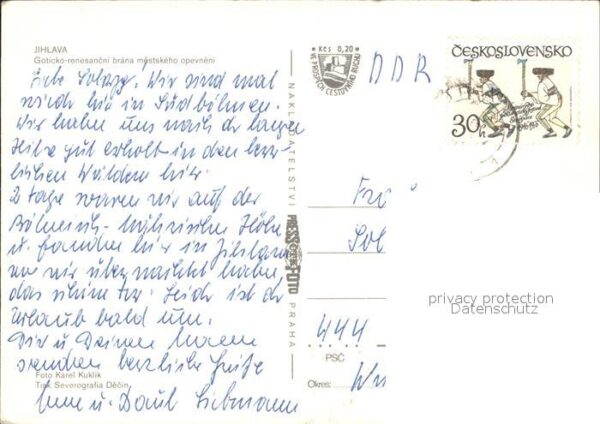 JIHLAVA
Goticko-renesanční brána městského opevnění
Wir sind mal
wieder hier in Südböhmen.
Wir haben uns nach der langen
gut erholt in den herr-
lichen Wäldern hier.
2 Tage waren wir auf der
Böhmisch-Mährischen Höhe
u. fanden hier in Jihlava
wo wir übernachtet haben,
das schöne Tor. Leider ist der
Urlaub bald um.
Dir u. Deinen
senden herzliche Grüße
Foto Karel Kuklík
Tisk Severografia Děčín
u. Liebmann
NAKLADATELSTVÍ
PRESSFOTO
PRAHA
Kčs 0,20
VE PROSPĚCH CESTOVNÍHO RUCHU
DDR
ČESKOSLOVENSKO
30 h
Sol
444
PSČ
Okres:
privacy protection
Datenschutz